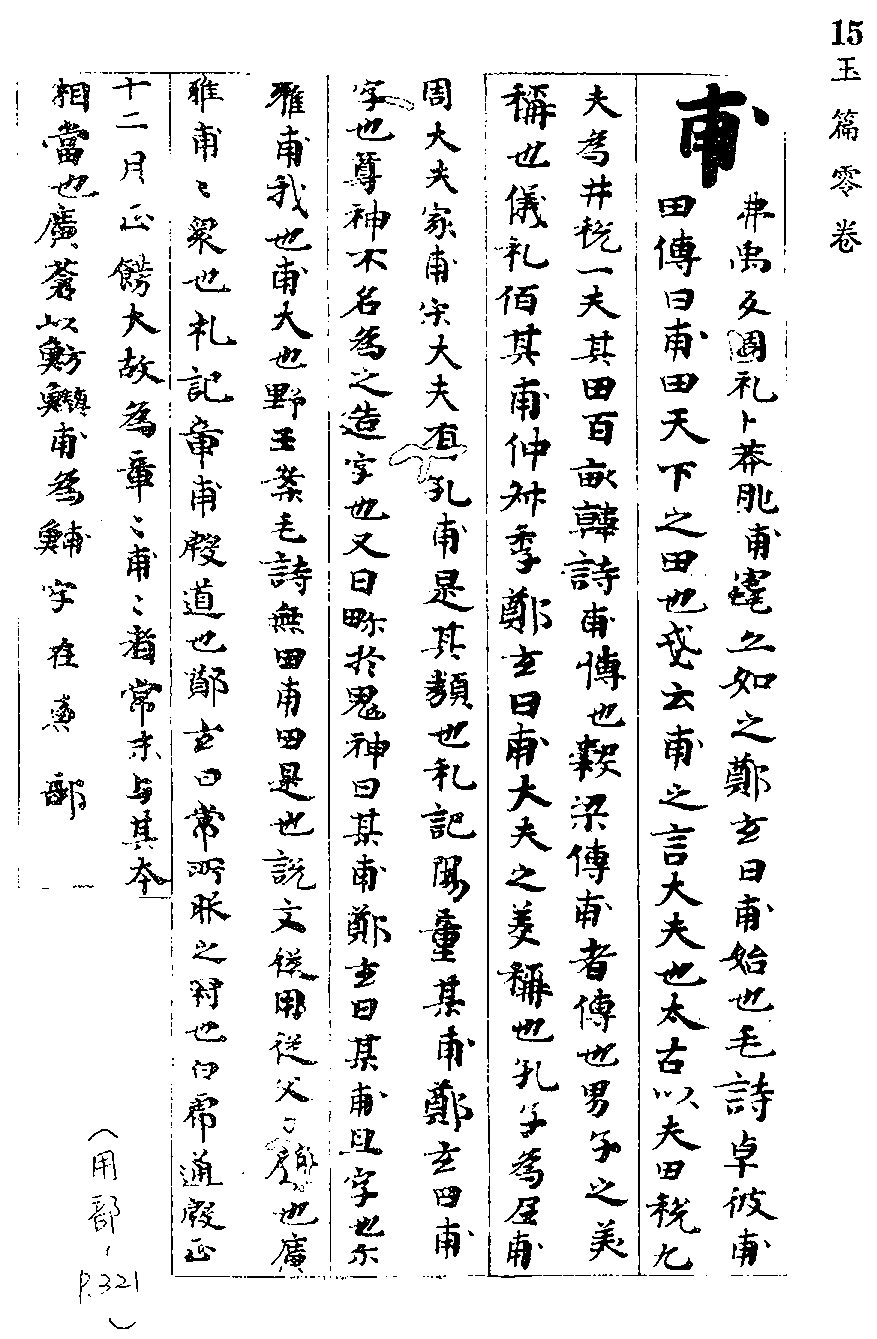 15
玉篇零卷
甫
弗禹反周礼卜葬兆甫竁之如之鄭玄曰甫始也毛詩倬彼甫
田傳曰甫田天下之田也戔云甫之言大夫也太古以夫田稅九
夫爲井稅一夫其田百畝韓詩甫博也穀梁傳甫者傅也男子之美
稱也儀礼伯某甫仲叔季鄭玄曰甫大夫之美稱也孔子爲尼甫
周大夫家甫宋大夫有孔甫是其類也礼記陽童某甫鄭玄曰甫
字也尊神不名爲之造字也又曰畛於鬼神曰某甫鄭玄曰某甫且字也尒
雅甫我也甫大也野王案毛詩無田甫田是也說文從用從父〻聲也廣
雅甫〻衆也礼記章甫殷道也鄭玄曰常所服之冠也白虎通殷正
十二月正餝大故爲章〻甫〻者常未与其本
相當也廣蒼以魴鱮甫爲䱐字在魚部
(用部、
P.321
)